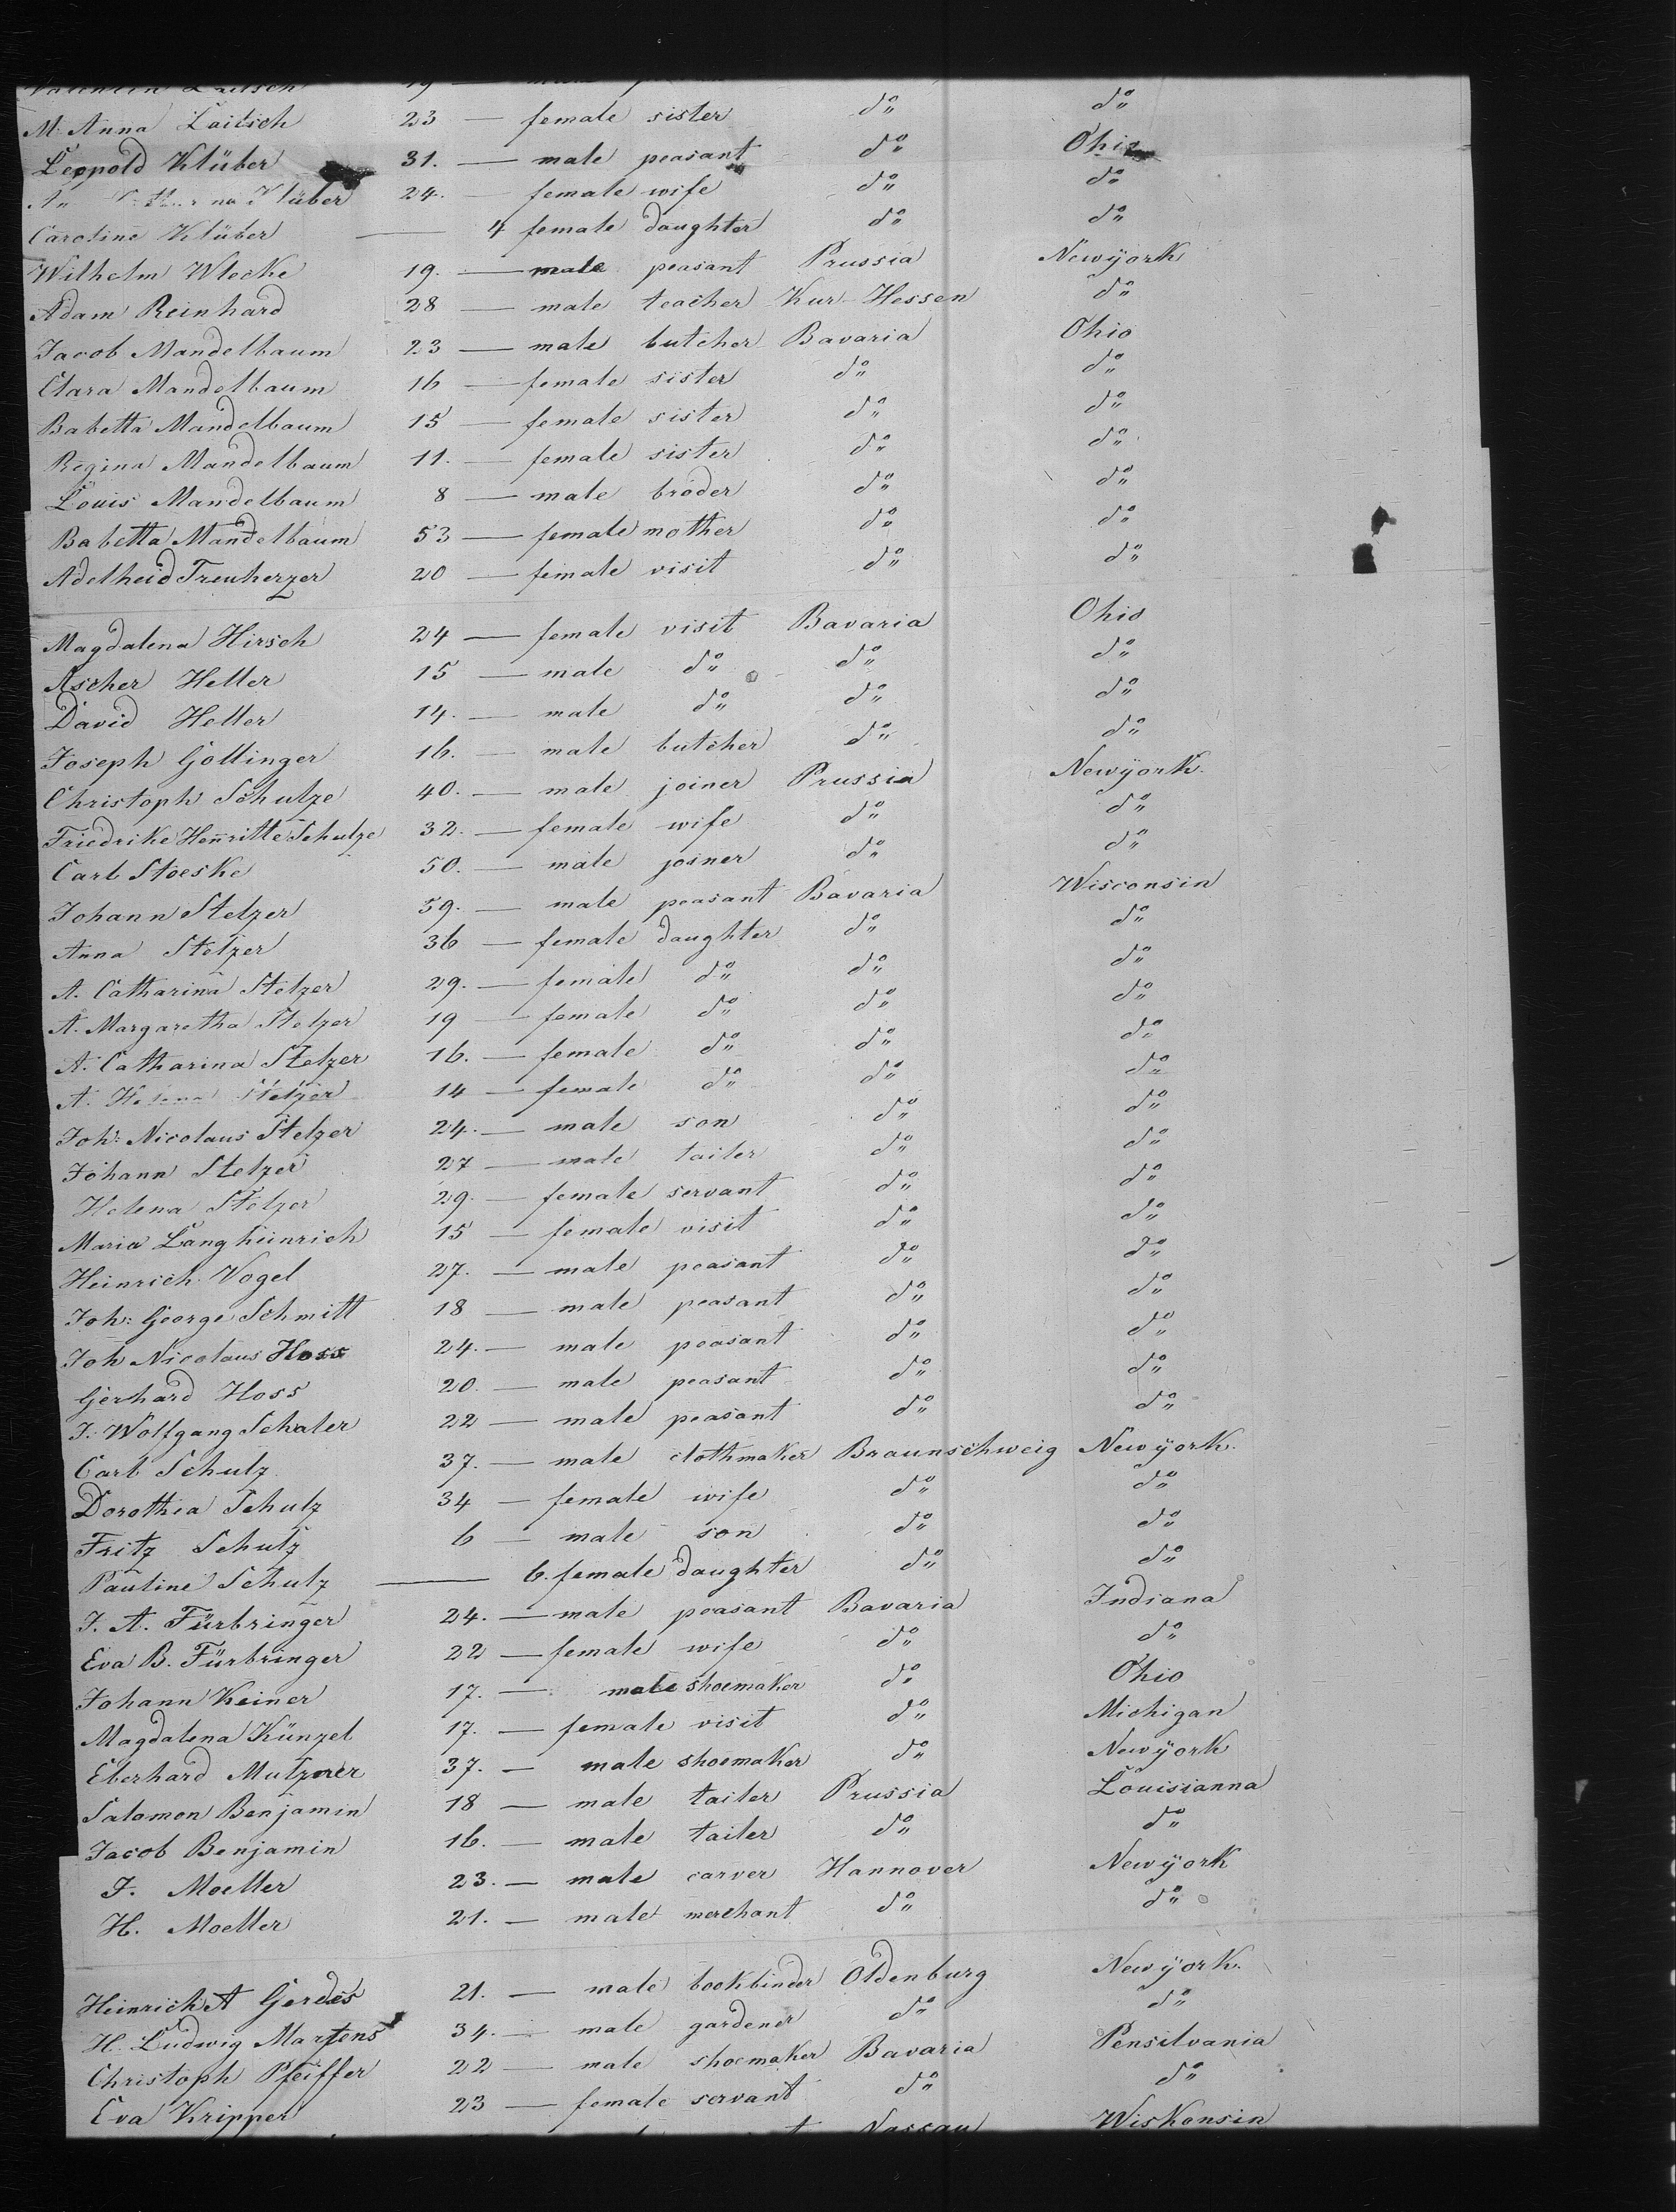 M. Anna Laitsch 23 — female sister d°" d°"
Leopold Klüber 31. — male peasant d°" Ohio
Klüber 24. — female wife d°" d°"
Caroline Klüber — 4 female daughter d°" d°"
Wilhelm Wlecke 19. — male peasant Prussia Newÿork
Adam Reinhard 28 — male teacher Kur-Hessen d°"
Jacob Mandelbaum 23 — male butcher Bavaria Ohio
Clara Mandelbaum 16 — female sister d°" d°"
Babetta Mandelbaum 15 — female sister d°" d°"
Regina Mandelbaum 11. — female sister d°" d°"
Louis Mandelbaum 8 — male broder d°" d°"
Babetta Mandelbaum 53 — female mother d°" d°"
Adelheid Treuherzer 20 — female visit d°" d°"
Magdalena Hirsch 24 — female visit Bavaria Ohio
Ascher Heller 15 — male d°" d°" d°"
David Heller 14. — male d°" d°" d°"
Joseph Gollinger 16. — male butcher d°" d°"
Christoph Schulze 40. — male joiner Prussia Newÿork.
Friedrike Henritte Schulze 32. — female wife d°" d°"
Carl Stoeske 50. — male joiner d°" d°"
Johann Stelzer 59. — male peasant Bavaria Wisconsin
Anna Stelzer 36 — female daughter d°" d°"
A. Catharina Stelzer 29. — female d°" d°" d°"
A. Margaretha Stelzer 19 — female d°" d°" d°"
A. Catharina Stelzer 16. — female d°" d°" d°"
A. Helena Stelzer 14 — female d°" d°" d°"
Joh: Nicolaus Stelzer 24. — male son d°" d°"
Johann Stelzer 27 — male tailer d°" d°"
Helena Stelzer 29. — female servant d°" d°"
Maria Langheinrich 15 — female visit d°" d°"
Heinrich Vogel 27. — male peasant d°" d°"
Joh: George Schmitt 18 — male peasant d°" d°"
Joh Nicolaus Hoss 24. — male peasant d°" d°"
Gerhard Hoss 20. — male peasant d°" d°"
J. Wolfgang Schaler 22 — male peasant d°" d°"
Carl Schulz 37. — male clothmaker Braunschweig Newÿork.
Dorothea Schulz 34 — female wife d°" d°"
Fritz Schulz 6 — male son d°" d°"
Pauline Schulz — 6. female daughter d°" d°"
J. A. Fürbringer 24. — male peasant Bavaria Indiana
Eva B. Fürbringer 22 — female wife d°" d°"
Johann Keiner 17. — male shoemaker d°" Ohio
Magdalena Künzel 17. — female visit d°" Michigan
Eberhard Mulzner 37. — male shoemaker d°" Newÿork
Salomon Benjamin 18 — male tailer Prussia Louisianna
Jacob Benjamin 16. — male tailer d°" d°"
J. Moeller 23. — male carver Hannover Newÿork
H. Moeller 21. — male merchant d°" d°"
Heinrich A Gerdes 21. — male bookbinder Oldenburg Newÿork.
H. Ludwig Martens 34. — male gardener d°" d°"
Christoph Pfeiffer 22 — male shoemaker Bavaria Pensilvania
Eva Kripper 23 — female servant d°" d°"
Nassau Wiskonsin